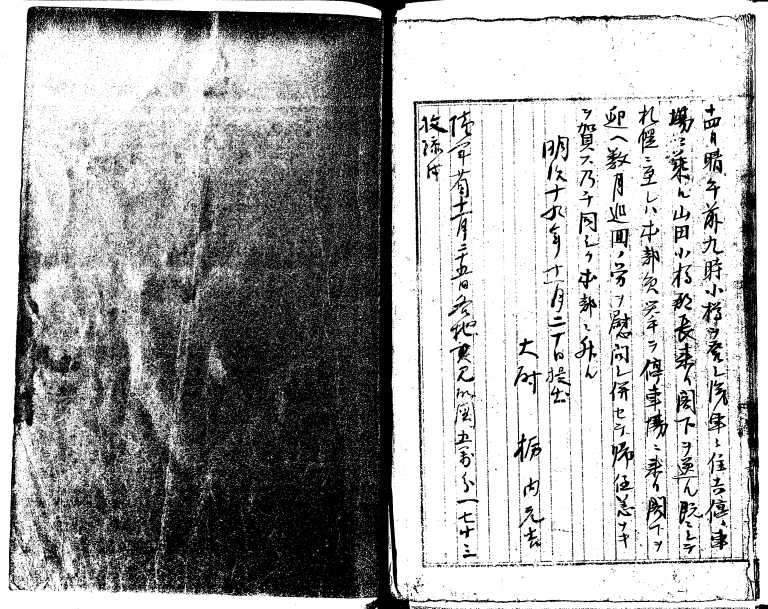 十四日晴午前九時小樽ヲ発シ汽車ニ住吉停車
場ニ乗ル山田小樽郡長来リ閣下ヲ送ル既ニシテ
札幌ニ至レハ本部員挙テ停車場ニ来リ閣下ヲ
迎ヘ数月巡回ノ労ヲ慰問シ併セテ帰任恙ナキ
ヲ賀ス乃チ同シク本部ニ升ル
明治十九年十一月二十日提出
大尉 栃内元吉
陸軍 十一月二十五日各地 五万分一七十三